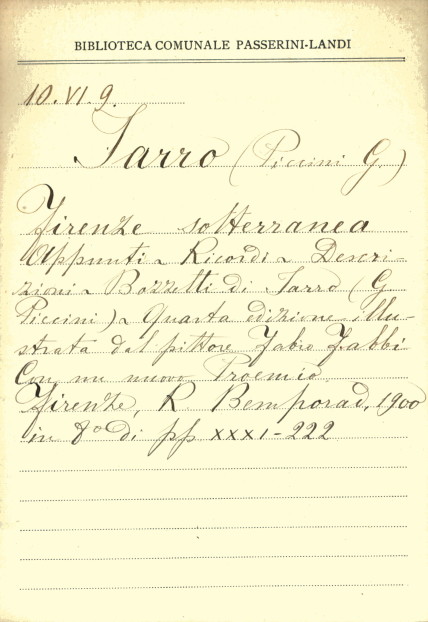 BIBLIOTECA COMUNALE PASSERINI-LANDI
10.VI.9.
Jarro (Piccini G.)
Firenze sotterranea
Appunti - Ricordi - Descri-
zioni - Bozzetti di Jarro (G
Piccini) - Quarta edizione illu-
strata dal pittore Fabio Fabbi
Con un nuovo Proemio.
Firenze, R. Bemporad, 1900
in 8º di pp XXXI-222